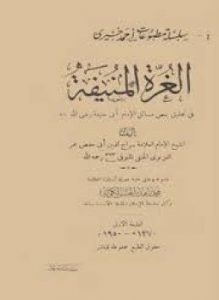 سلسلة مطبوعات أحمد خيرى
الغرة المنيفة
فى تحقيق بعض مسائل الإمام أبى حنيفة رضى الله عنه
تأليف
الشيخ الإمام العلامة سراج الدين أبى حفص عمر
الغزنوى الحنفى المتوفى رحمه الله
الطبعة الأولى
١٣٧٠ - ١٩٥٠
حقوق الطبع محفوظة للناشر